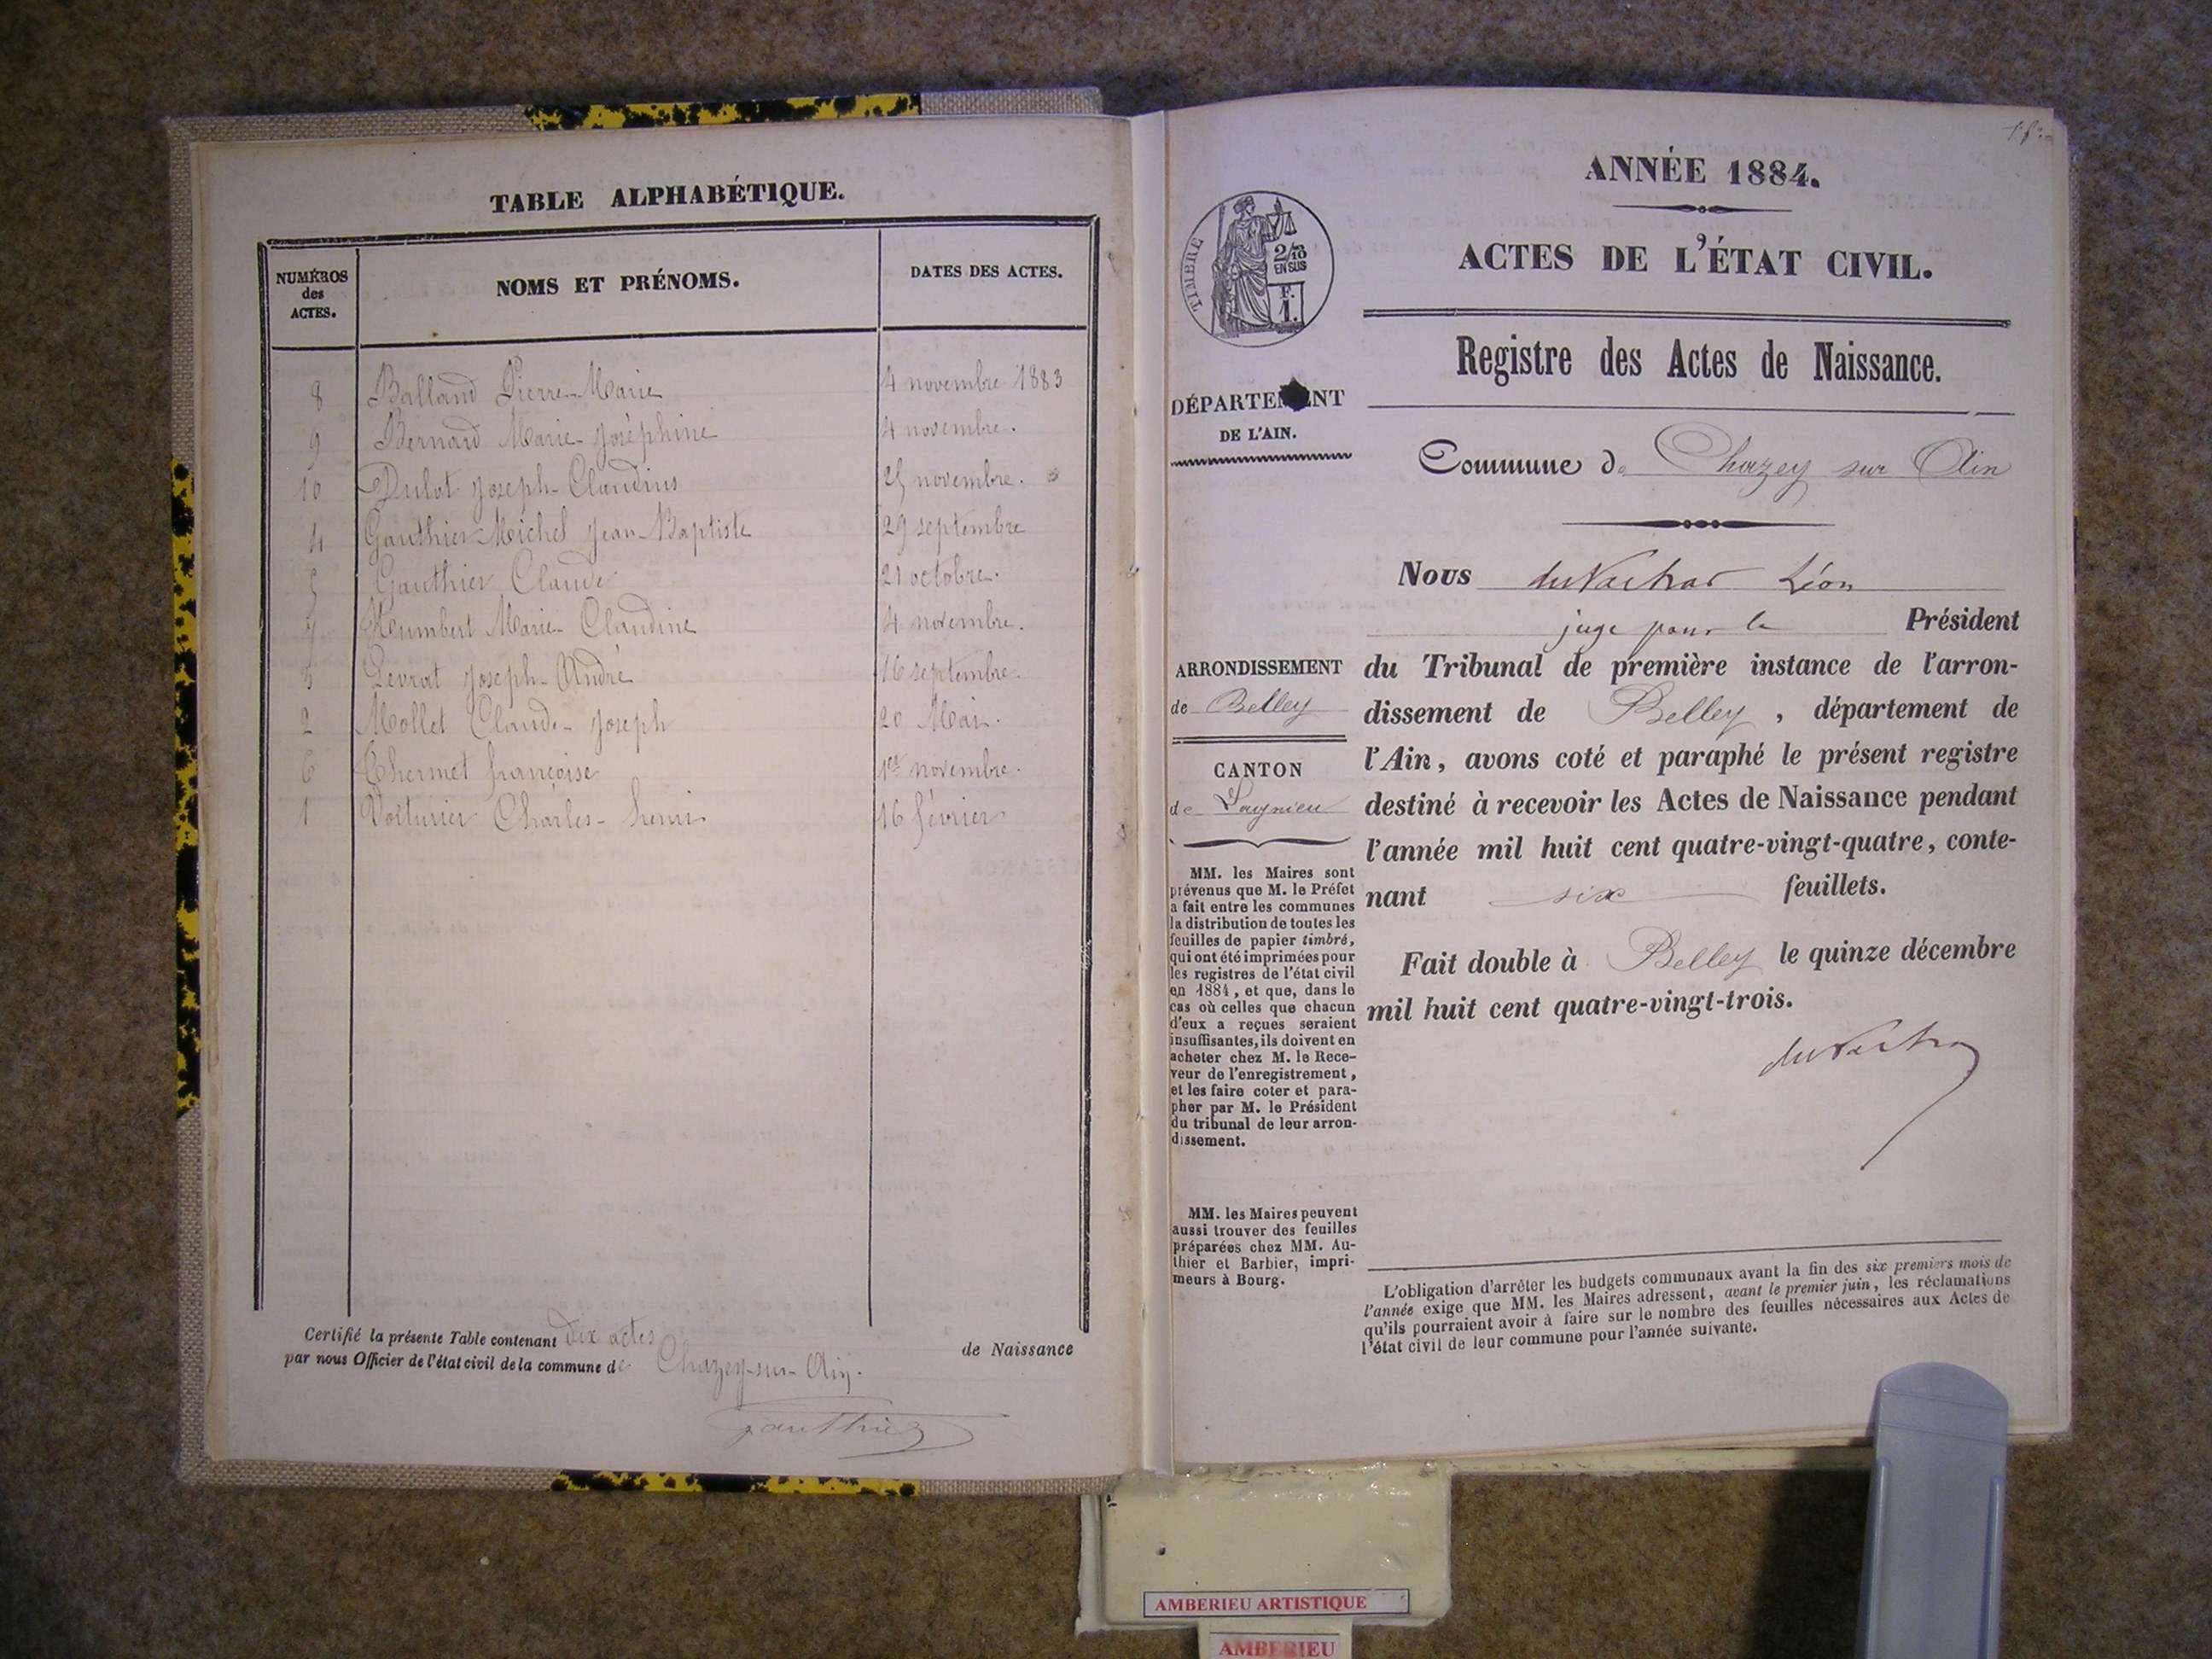 TABLE ALPHABÉTIQUE.
NUMÉROS des ACTES. NOMS ET PRÉNOMS. DATES DES ACTES.
8 Balland Pierre-Marie 4 novembre 1883
9 Bernard Marie-Joséphine 4 novembre.
10 Dulot Joseph-Claudius 25 novembre.
4 Gauthier-Michel Jean-Baptiste 29 septembre
5 Gauthier Claude 21 octobre.
7 Humbert Marie-Claudine 4 novembre.
3 Levrat Joseph-André 16 septembre.
2 Mollet Claude-Joseph 20 Mai.
6 Thermet françoise 1er novembre.
1 Voiturier Charles-henri 16 février
Certifié la présente Table contenant Dix actes de Naissance
par nous Officier de l'état civil de la commune de Chazey-sur-Ain.
gauthier
ANNÉE 1884.
ACTES DE L'ÉTAT CIVIL.
Registre des Actes de Naissance.
TIMBRE
2/10
EN SUS
F.
1.
DÉPARTEMENT
DE L'AIN.
Commune de Chazey sur Ain
Nous Léon
juge pour le Président
du Tribunal de première instance de l'arron-
dissement de Belley, département de
l'Ain, avons coté et paraphé le présent registre
destiné à recevoir les Actes de Naissance pendant
l'année mil huit cent quatre-vingt-quatre, conte-
nant six feuillets.
Fait double à Belley le quinze décembre
mil huit cent quatre-vingt-trois.
ARRONDISSEMENT
de Belley
CANTON
de Lagnieu
MM. les Maires sont
prévenus que M. le Préfet
a fait entre les communes
la distribution de toutes les
feuilles de papier timbré,
qui ont été imprimées pour
les registres de l'état civil
en 1884, et que, dans le
cas où celles que chacun
d'eux a reçues seraient
insuffisantes, ils doivent en
acheter chez M. le Rece-
veur de l'enregistrement,
et les faire coter et para-
pher par M. le Président
du tribunal de leur arron-
dissement.
MM. les Maires peuvent
aussi trouver des feuilles
préparées chez MM. Au-
thier et Barbier, impri-
meurs à Bourg.
L'obligation d'arrêter les budgets communaux avant la fin des six premiers mois de
l'année exige que MM. les Maires adressent, avant le premier juin, les réclamations
qu'ils pourraient avoir à faire sur le nombre des feuilles nécessaires aux Actes de
l'état civil de leur commune pour l'année suivante.
AMBERIEU ARTISTIQUE
AMBERIEU